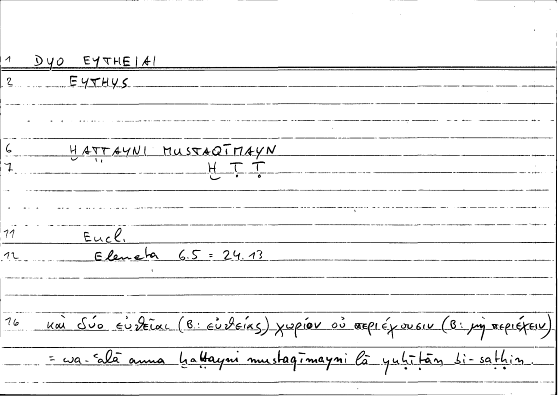 1 DYO EYTHEIAI
2 EYTHYS
6 ḪAṬṬAYNI MUSTAQĪMAYN
7 Ḫ Ṭ Ṭ
11 Eucl.
12 Elementa 6.5 = 24.13
16 καὶ δύο εὐθεῖαι (B: εὐθείας) χωρίον οὐ περιέχουσιν (B: μὴ περιέχειν)
= wa-ʿalā anna ḫaṭṭayni mustaqīmayni lā yuḥīṭān bi-saṭḥin.